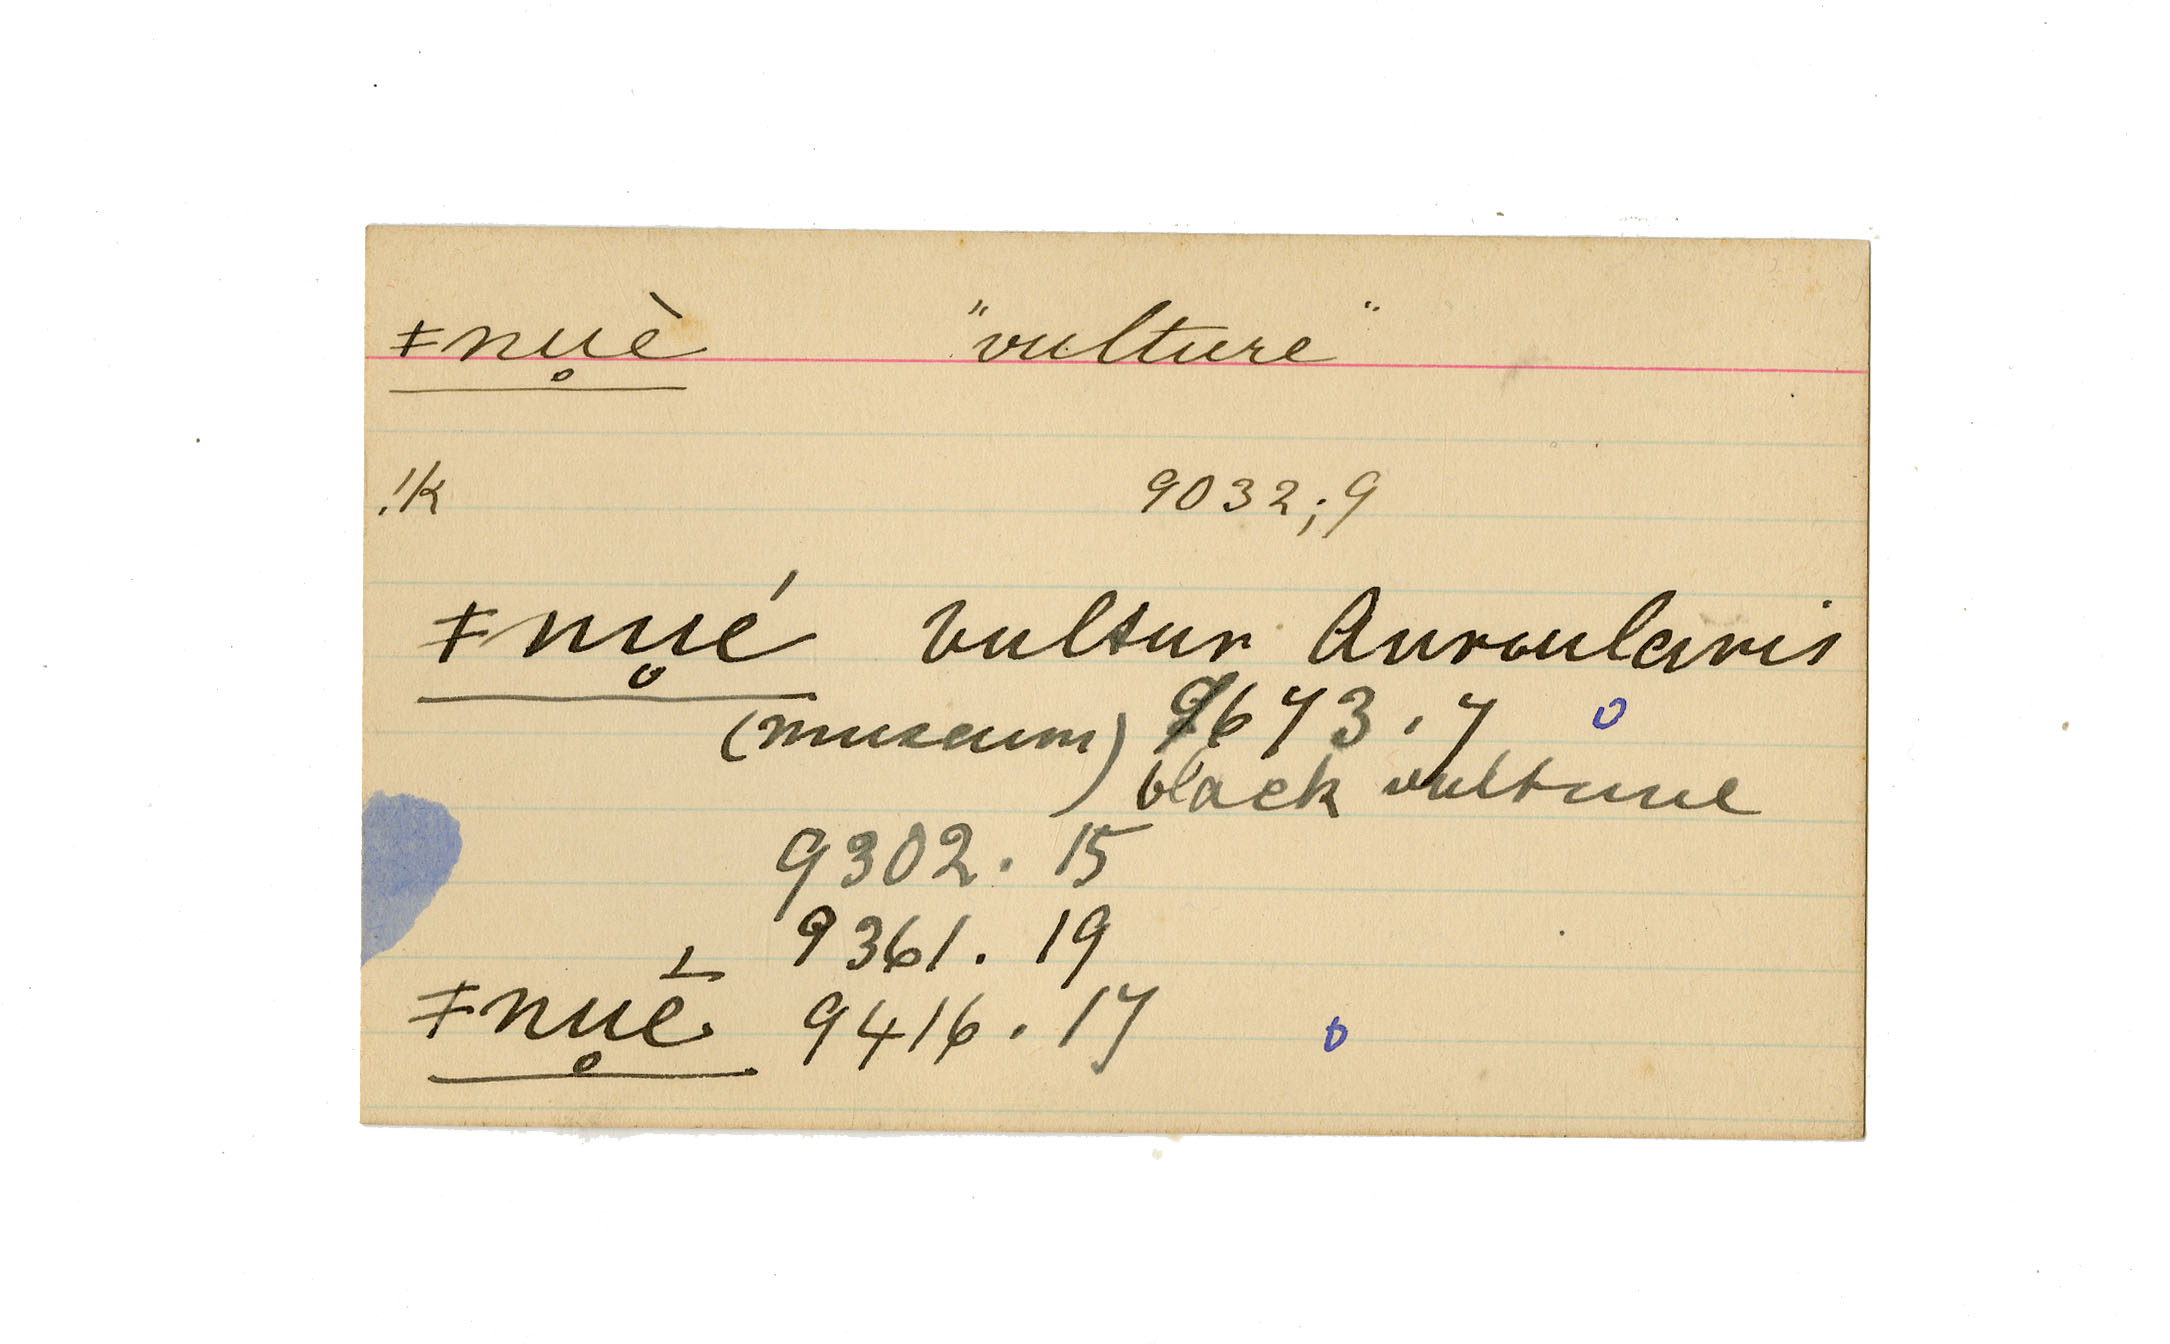 ǂnu̥è "vulture"
!k 9032; 9
ǂnu̥é Vultur Auroularis
(museum) 9673.7
black vulture
9302.15
9361.19
ǂnu̥e̱ 9416.17